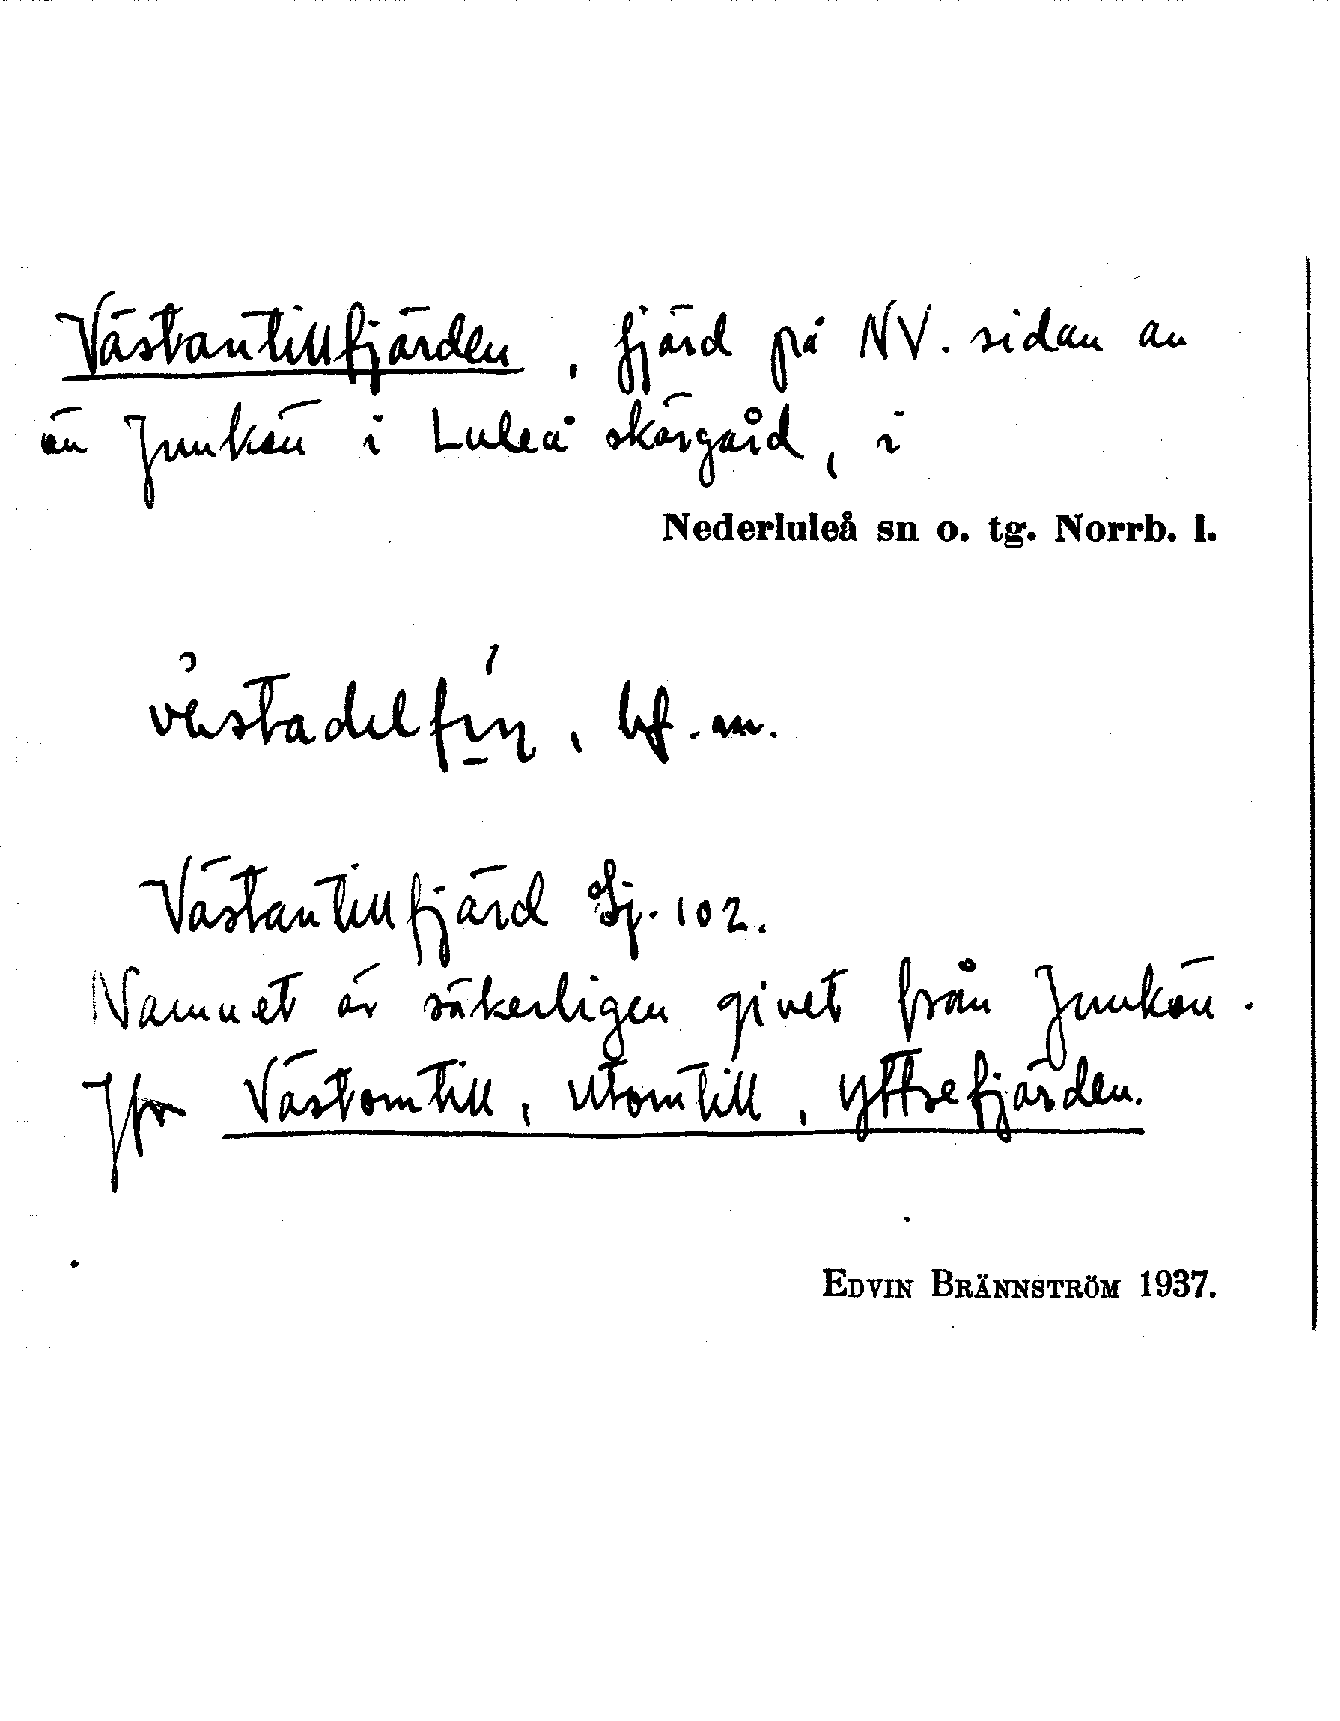 Västantillfjärden, fjärd på NV. sidan av
ön Junkön i Luleå skärgård, i
Nederluleå sn o. tg. Norrb. l.
bf. m.
Västantillfjärd Sj. 102.
Namnet är säkerligen givet från Junkön.
Jfr Västomtill, Utomtill, Yttrefjärden.
EDVIN BRÄNNSTRÖM 1937.